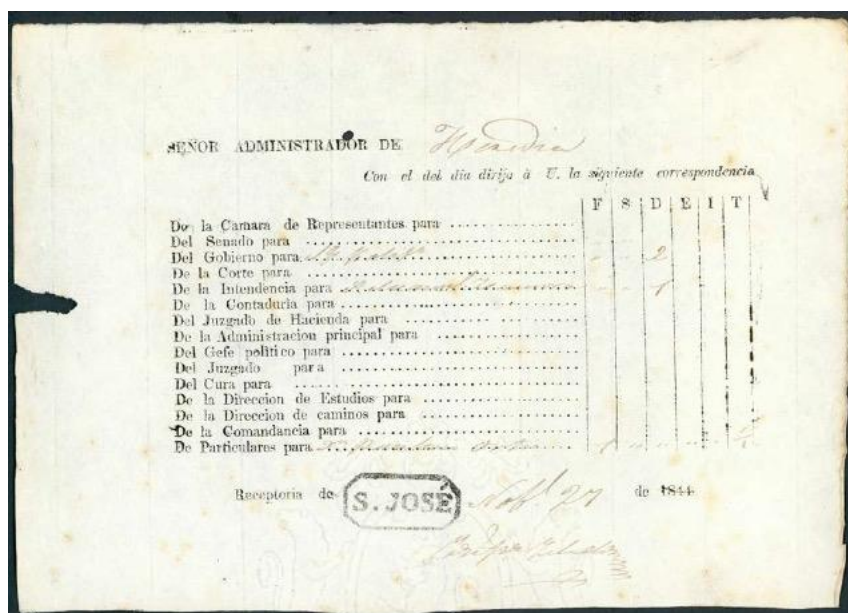 SEÑOR ADMINISTRADOR DE Heredia
Con el del dia dirijo à U. la siguiente correspondencia
F S D E I T
De la Camara de Representantes para
Del Senado para
Del Gobierno para 2
De la Corte para
De la Intendencia para 1
De la Contaduria para
Del Juzgado de Hacienda para
De la Administracion principal para
Del Gefe politico para
Del Juzgado para
Del Cura para
De la Direccion de Estudios para
De la Direccion de caminos para
De la Comandancia para
De Particulares para
Receptoria de S. JOSÉ 27 de 1844